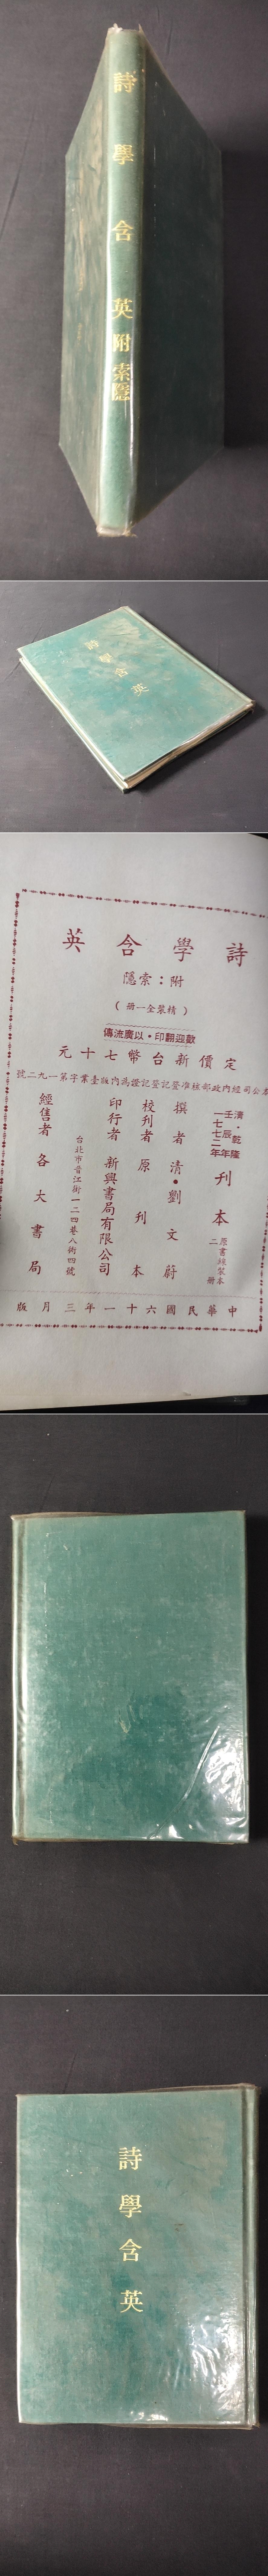 詩學含英附索隱
詩學含英
詩學含英
附：索隱
（精裝全一冊）
歡迎翻印・以廣流傳
定價新台幣七十元
本公司經內政部核准登記登記證爲內版臺業字第一九二號
清・乾隆
壬辰年
一七七二年
刊本
原書線裝本
二冊
撰者　清・劉文蔚
校刊者　原刊本
印行者　新興書局有限公司
台北市晉江街一二四巷八衖四號
經售者　各大書局
中華民國六十一年三月版
詩學含英